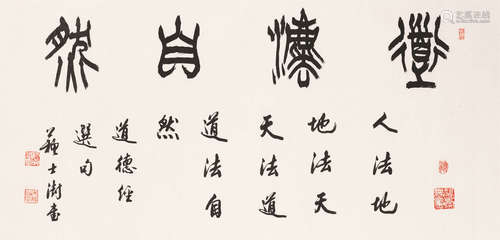 道灋自然
人法地
地法天
天法道
道法自
然
道德經
選句
蘇士澍書